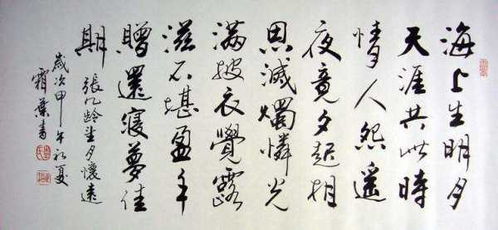 海上生明月
天涯共此時
情人怨遙
夜竟夕起相
思滅燭憐光
滿披衣覺露
滋不堪盈手
贈還寢夢佳
期
張九齡望月懷遠
歲次甲午初夏
霜葉書